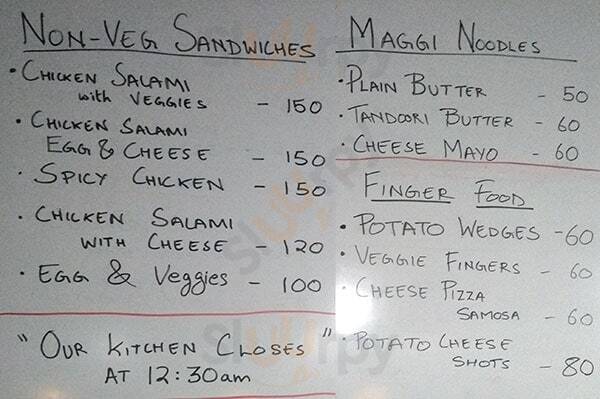 Non-Veg Sandwiches
• Chicken Salami
with Veggies - 150
• Chicken Salami
Egg & Cheese - 150
• Spicy Chicken - 150
• Chicken Salami
with Cheese - 120
• Egg & Veggies - 100
"Our Kitchen Closes"
at 12:30am
Maggi Noodles
• Plain Butter - 50
• Tandoori Butter - 60
• Cheese Mayo - 60
Finger Food
• Potato Wedges - 60
• Veggie Fingers - 60
• Cheese Pizza
Samosa - 60
• Potato Cheese
Shots - 80
Slurrpy